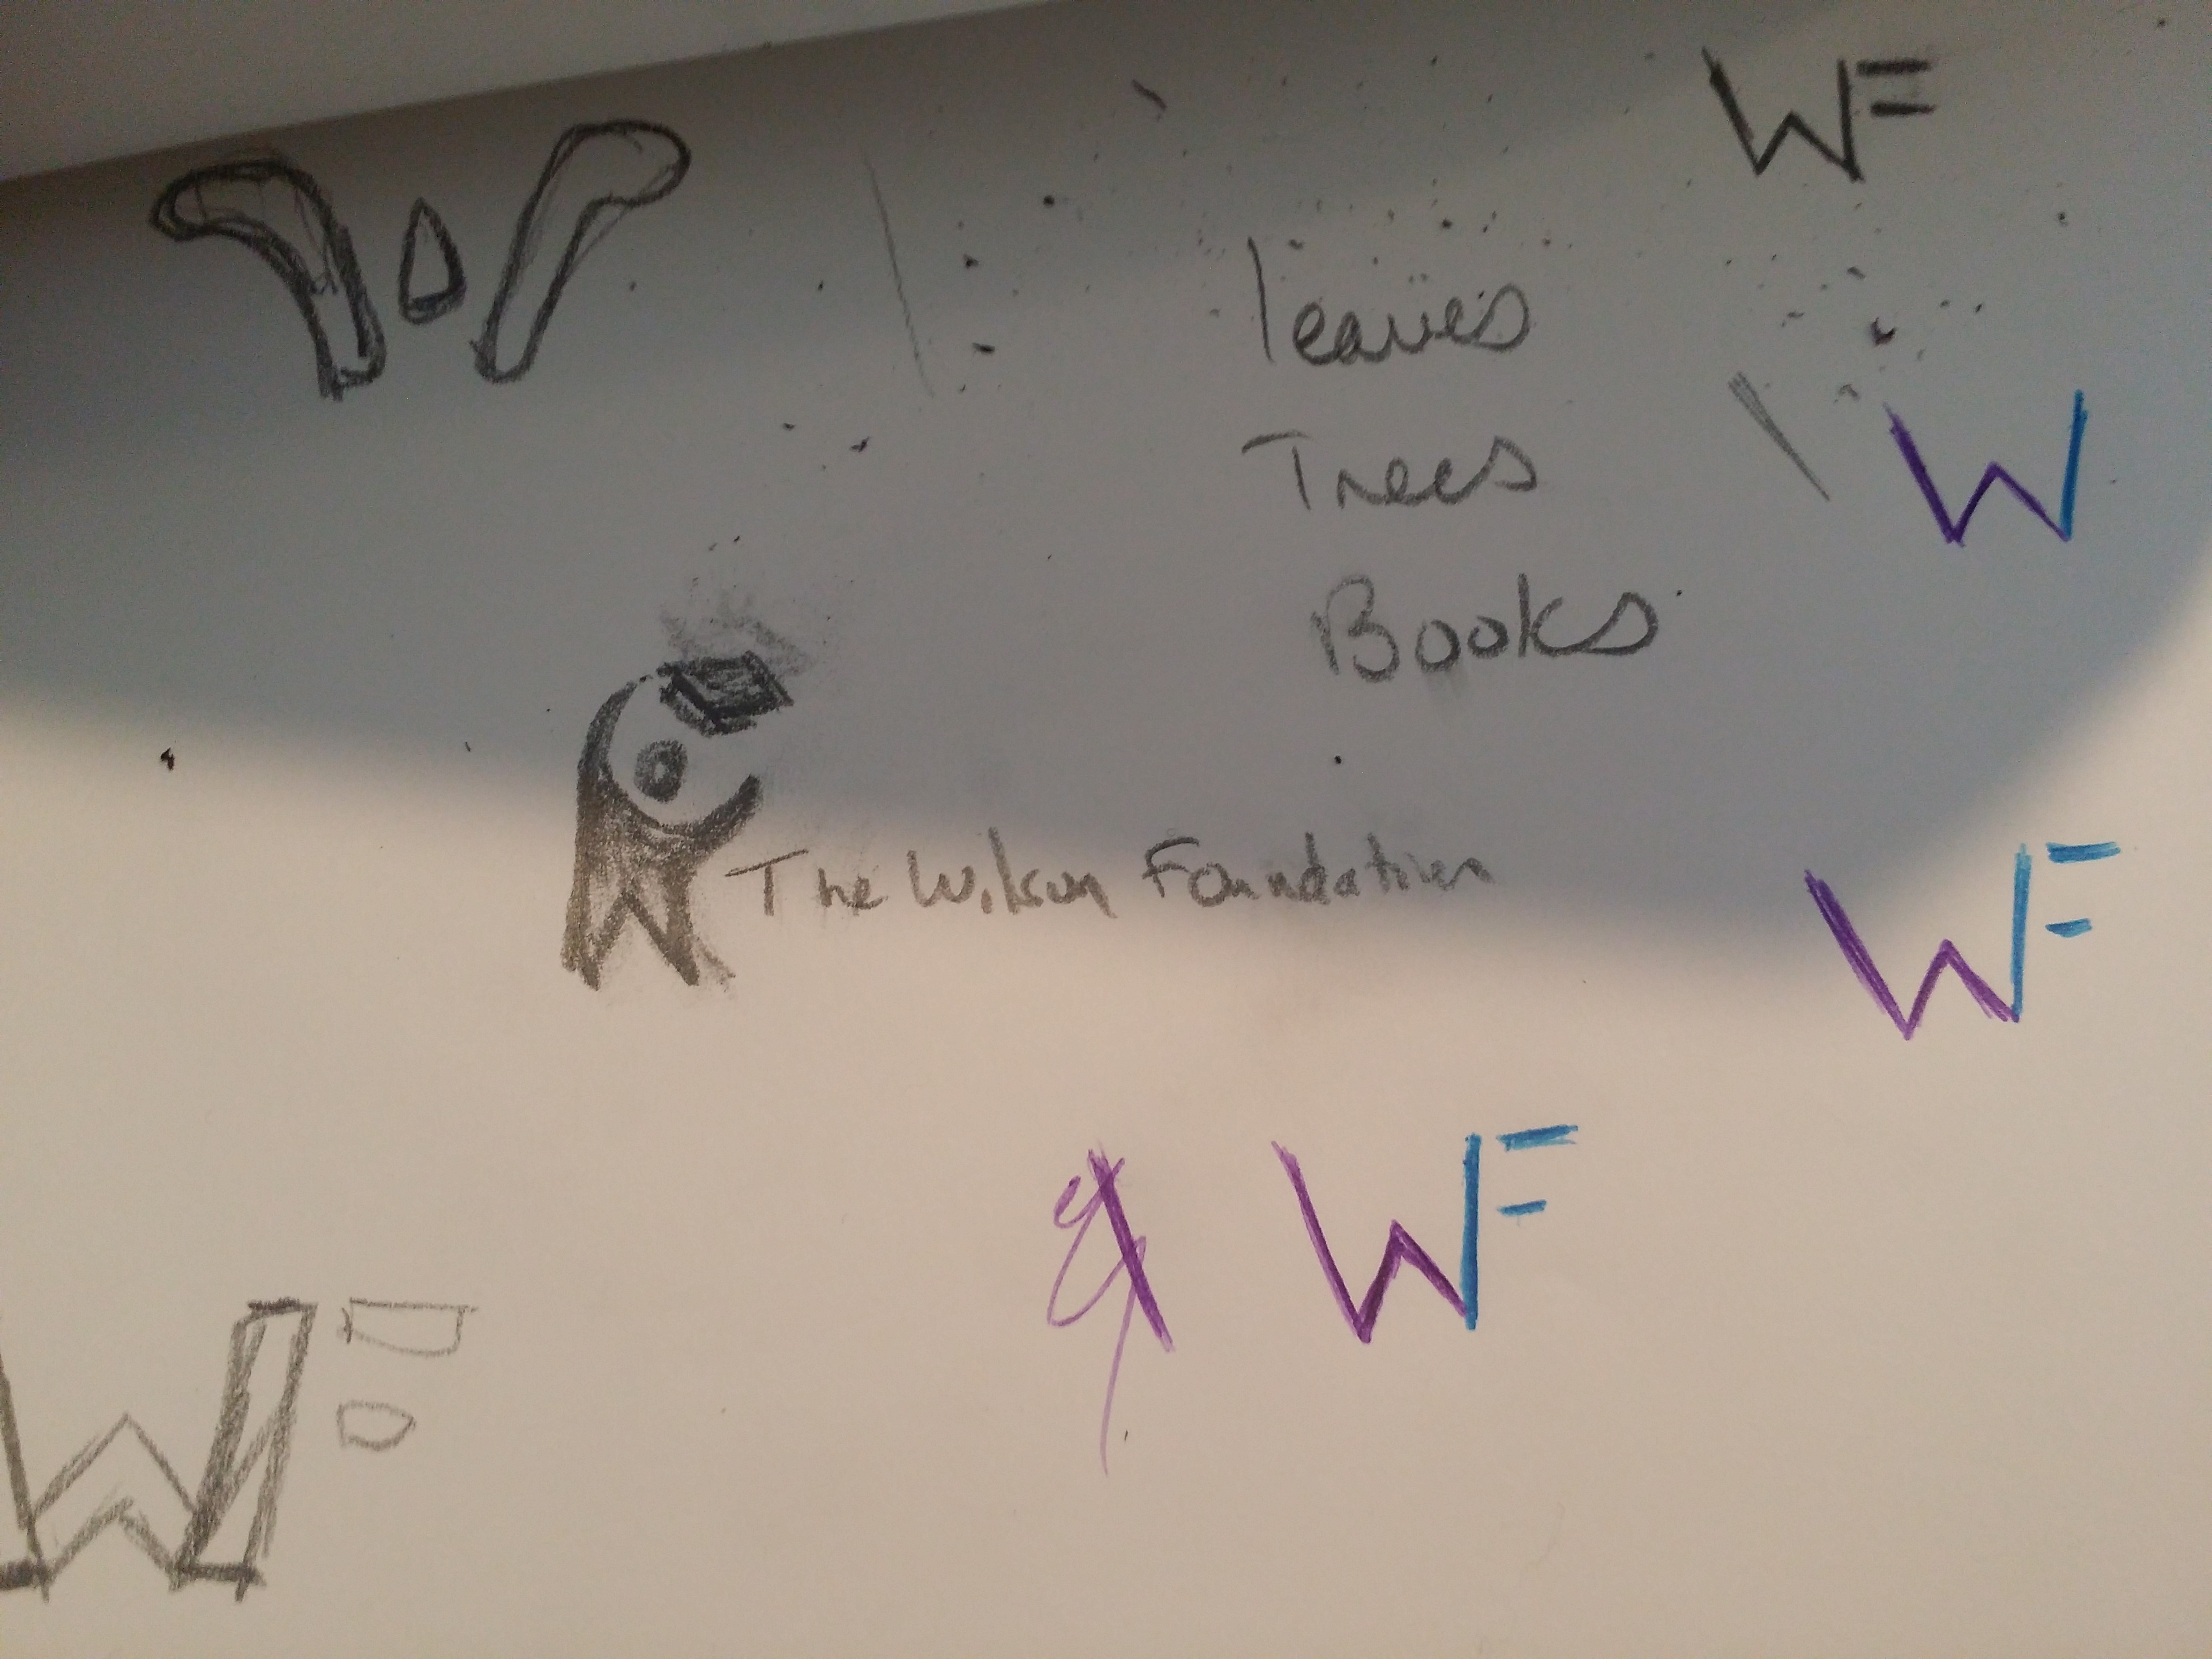 WF
leaves
Trees
W
Books
The Wilson Foundation
WF
WF
WF